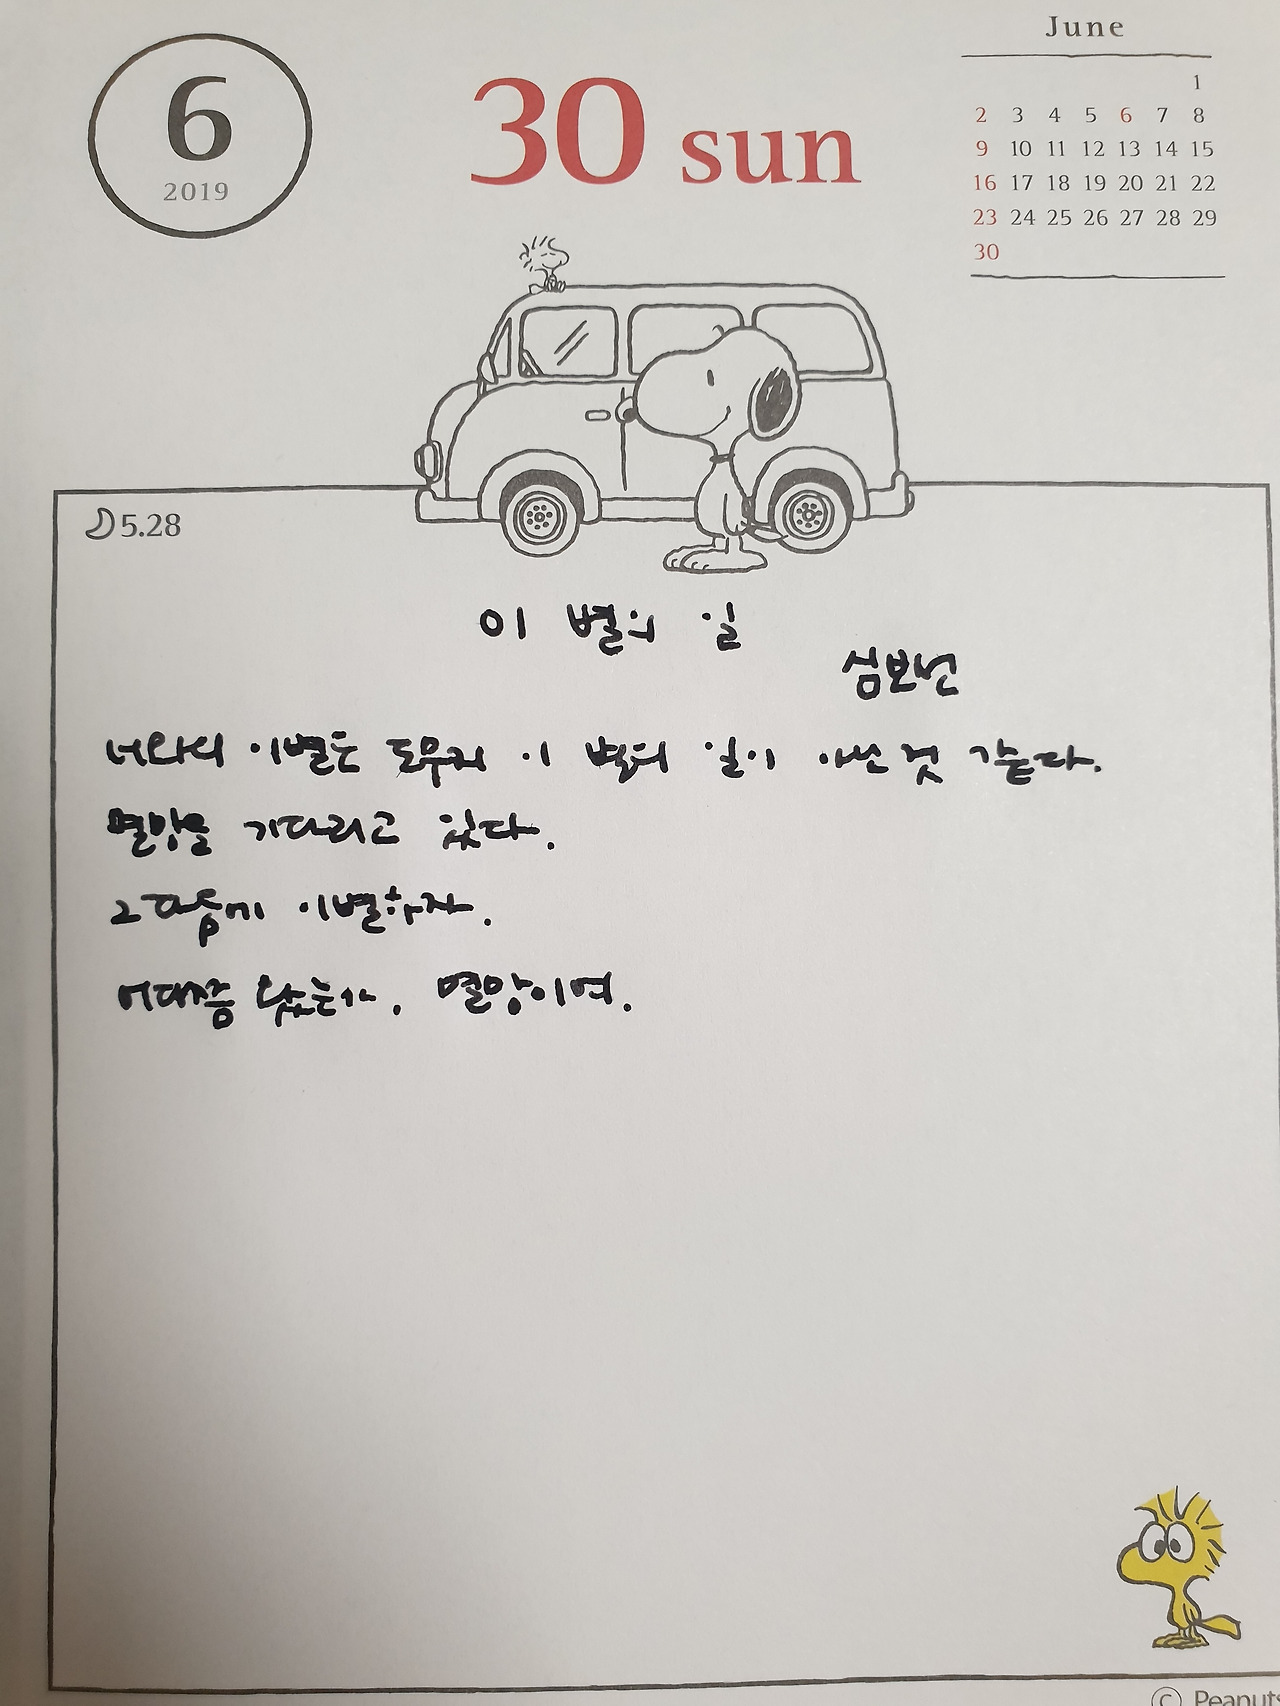 6
2019
30 sun
June
1
2 3 4 5 6 7 8
9 10 11 12 13 14 15
16 17 18 19 20 21 22
23 24 25 26 27 28 29
30
5.28
이 별의 일
심보선
너와의 이별은 도무지 이 별의 일이 아닌 것 같다.
멸망을 기다리고 있다.
그 다음에 이별하자.
어디쯤 왔는가, 멸망이여.
© Peanuts